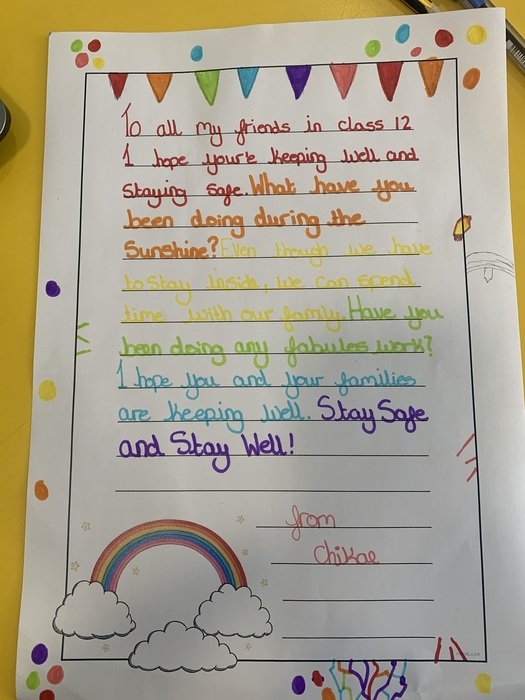 To all my friends in class 12
I hope your'e keeping well and
staying safe. What have you
been doing during the
Sunshine? Even though we have
to stay inside, we can spend
time with our family. Have you
been doing any fabules work?
I hope you and your families
are keeping well. Stay Safe
and Stay Well!
from
Chikae